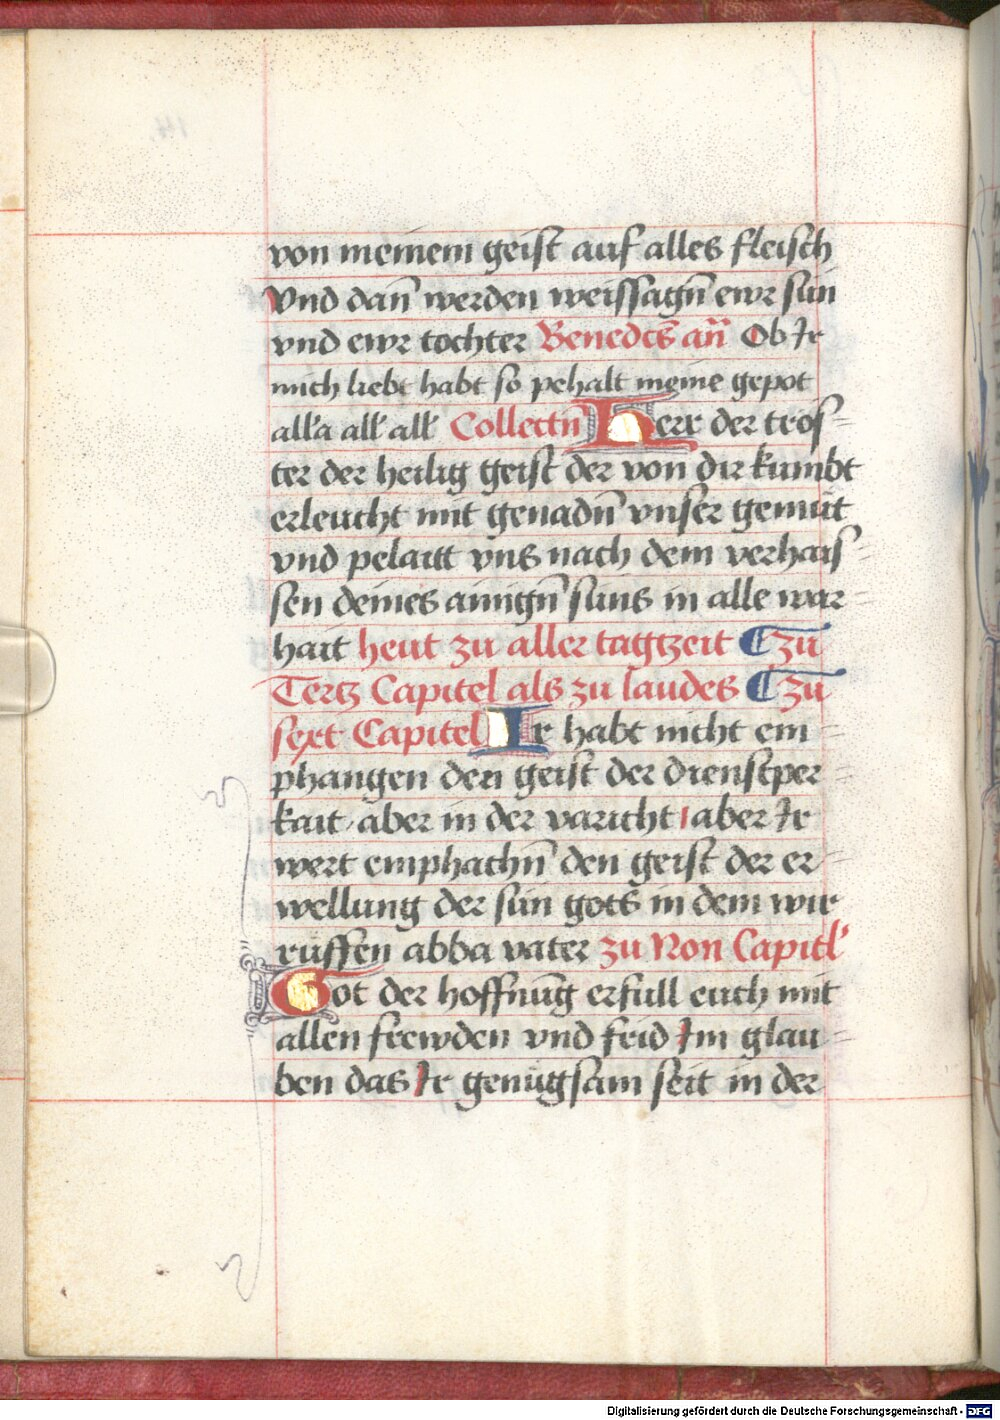 von meinem geist auf alles fleisch
Vnd dan̄ werden weissagn̄ ewr sün
vnd ewr tochter Benedcs an̄ Ob Ir
mich liebt habt so pehalt meine gepot
alla all all Collectn̄ Herr der tros
ter der heilig geist der von dir kumbt
erleucht mit genadn̄ vnser gemüt
vnd pelaitt vns nach dem verhais
sen deines ainign̄ süns in alle war
hait heut zu aller tagtzeit ¶ Zu
Tertz Capitel als zu laudes ¶ Zu
sext Capitel Ir habt nicht em
phangen den geist der dienstper
kait aber in der varicht aber Ir
wert emphachn̄ den geist der er
wellung der sün gots in dem wir
rüffen abba vater zu Non Capitl
Got der hoffnūg erfull euch mit
allen frewden vnd frid Im glau
ben das Ir genügsam seit in der
Digitalisierung gefördert durch die Deutsche Forschungsgemeinschaft - DFG